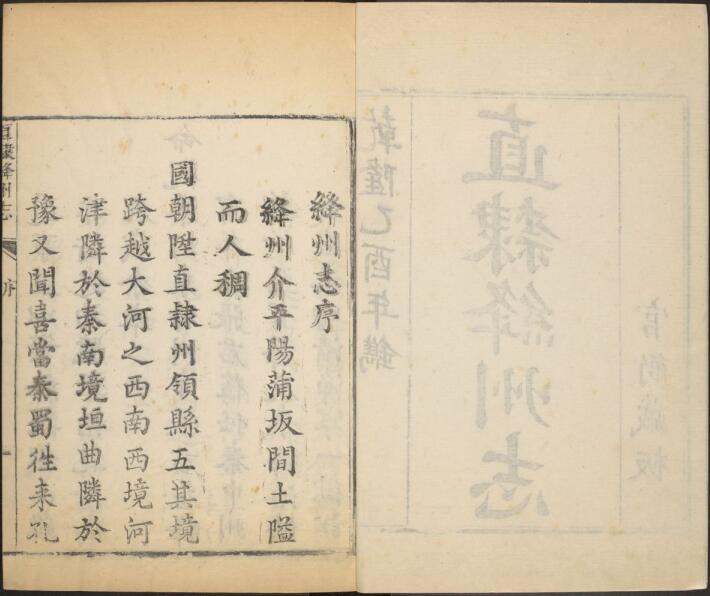 絳州志序
絳州介平陽蒲坂間土隘
而人稠
國朝陞直隸州領縣五其境
跨越大河之西南西境河
津隣於秦南境垣曲隣於
豫又聞喜當秦蜀徃来孔
直隸絳州志
序
一
乾隆乙酉年鐫
直隸絳州志
官衙藏板